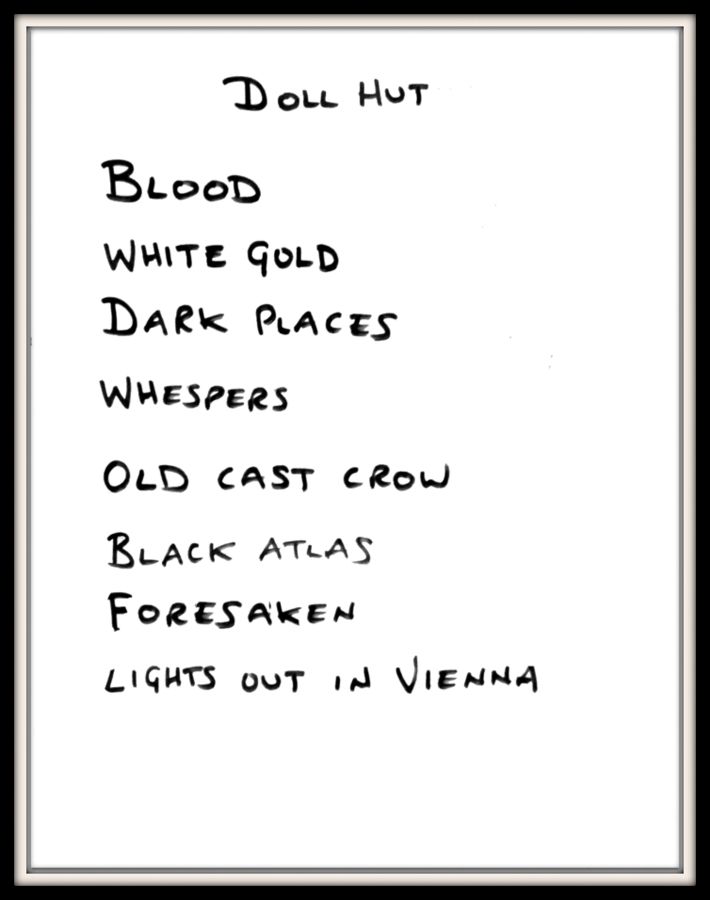 DOLL HUT
BLOOD
WHITE GOLD
DARK PLACES
WHESPERS
OLD CAST CROW
BLACK ATLAS
FORESAKEN
LIGHTS OUT IN VIENNA